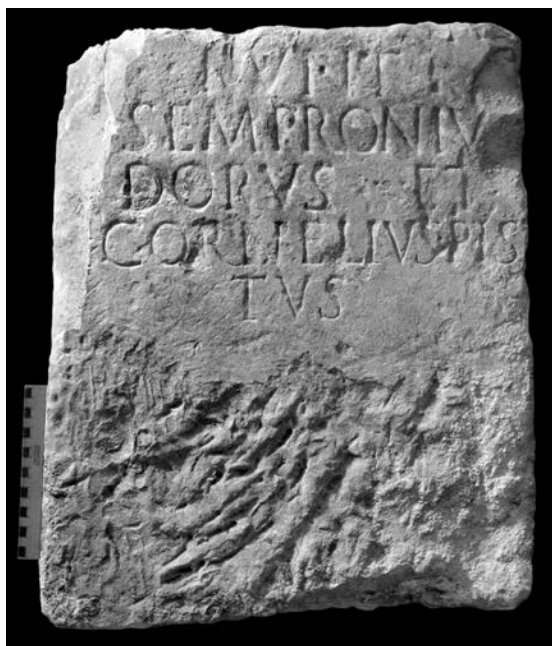 SEMPRONIV
DORVS ET
CORNELIVS PIS
TVS